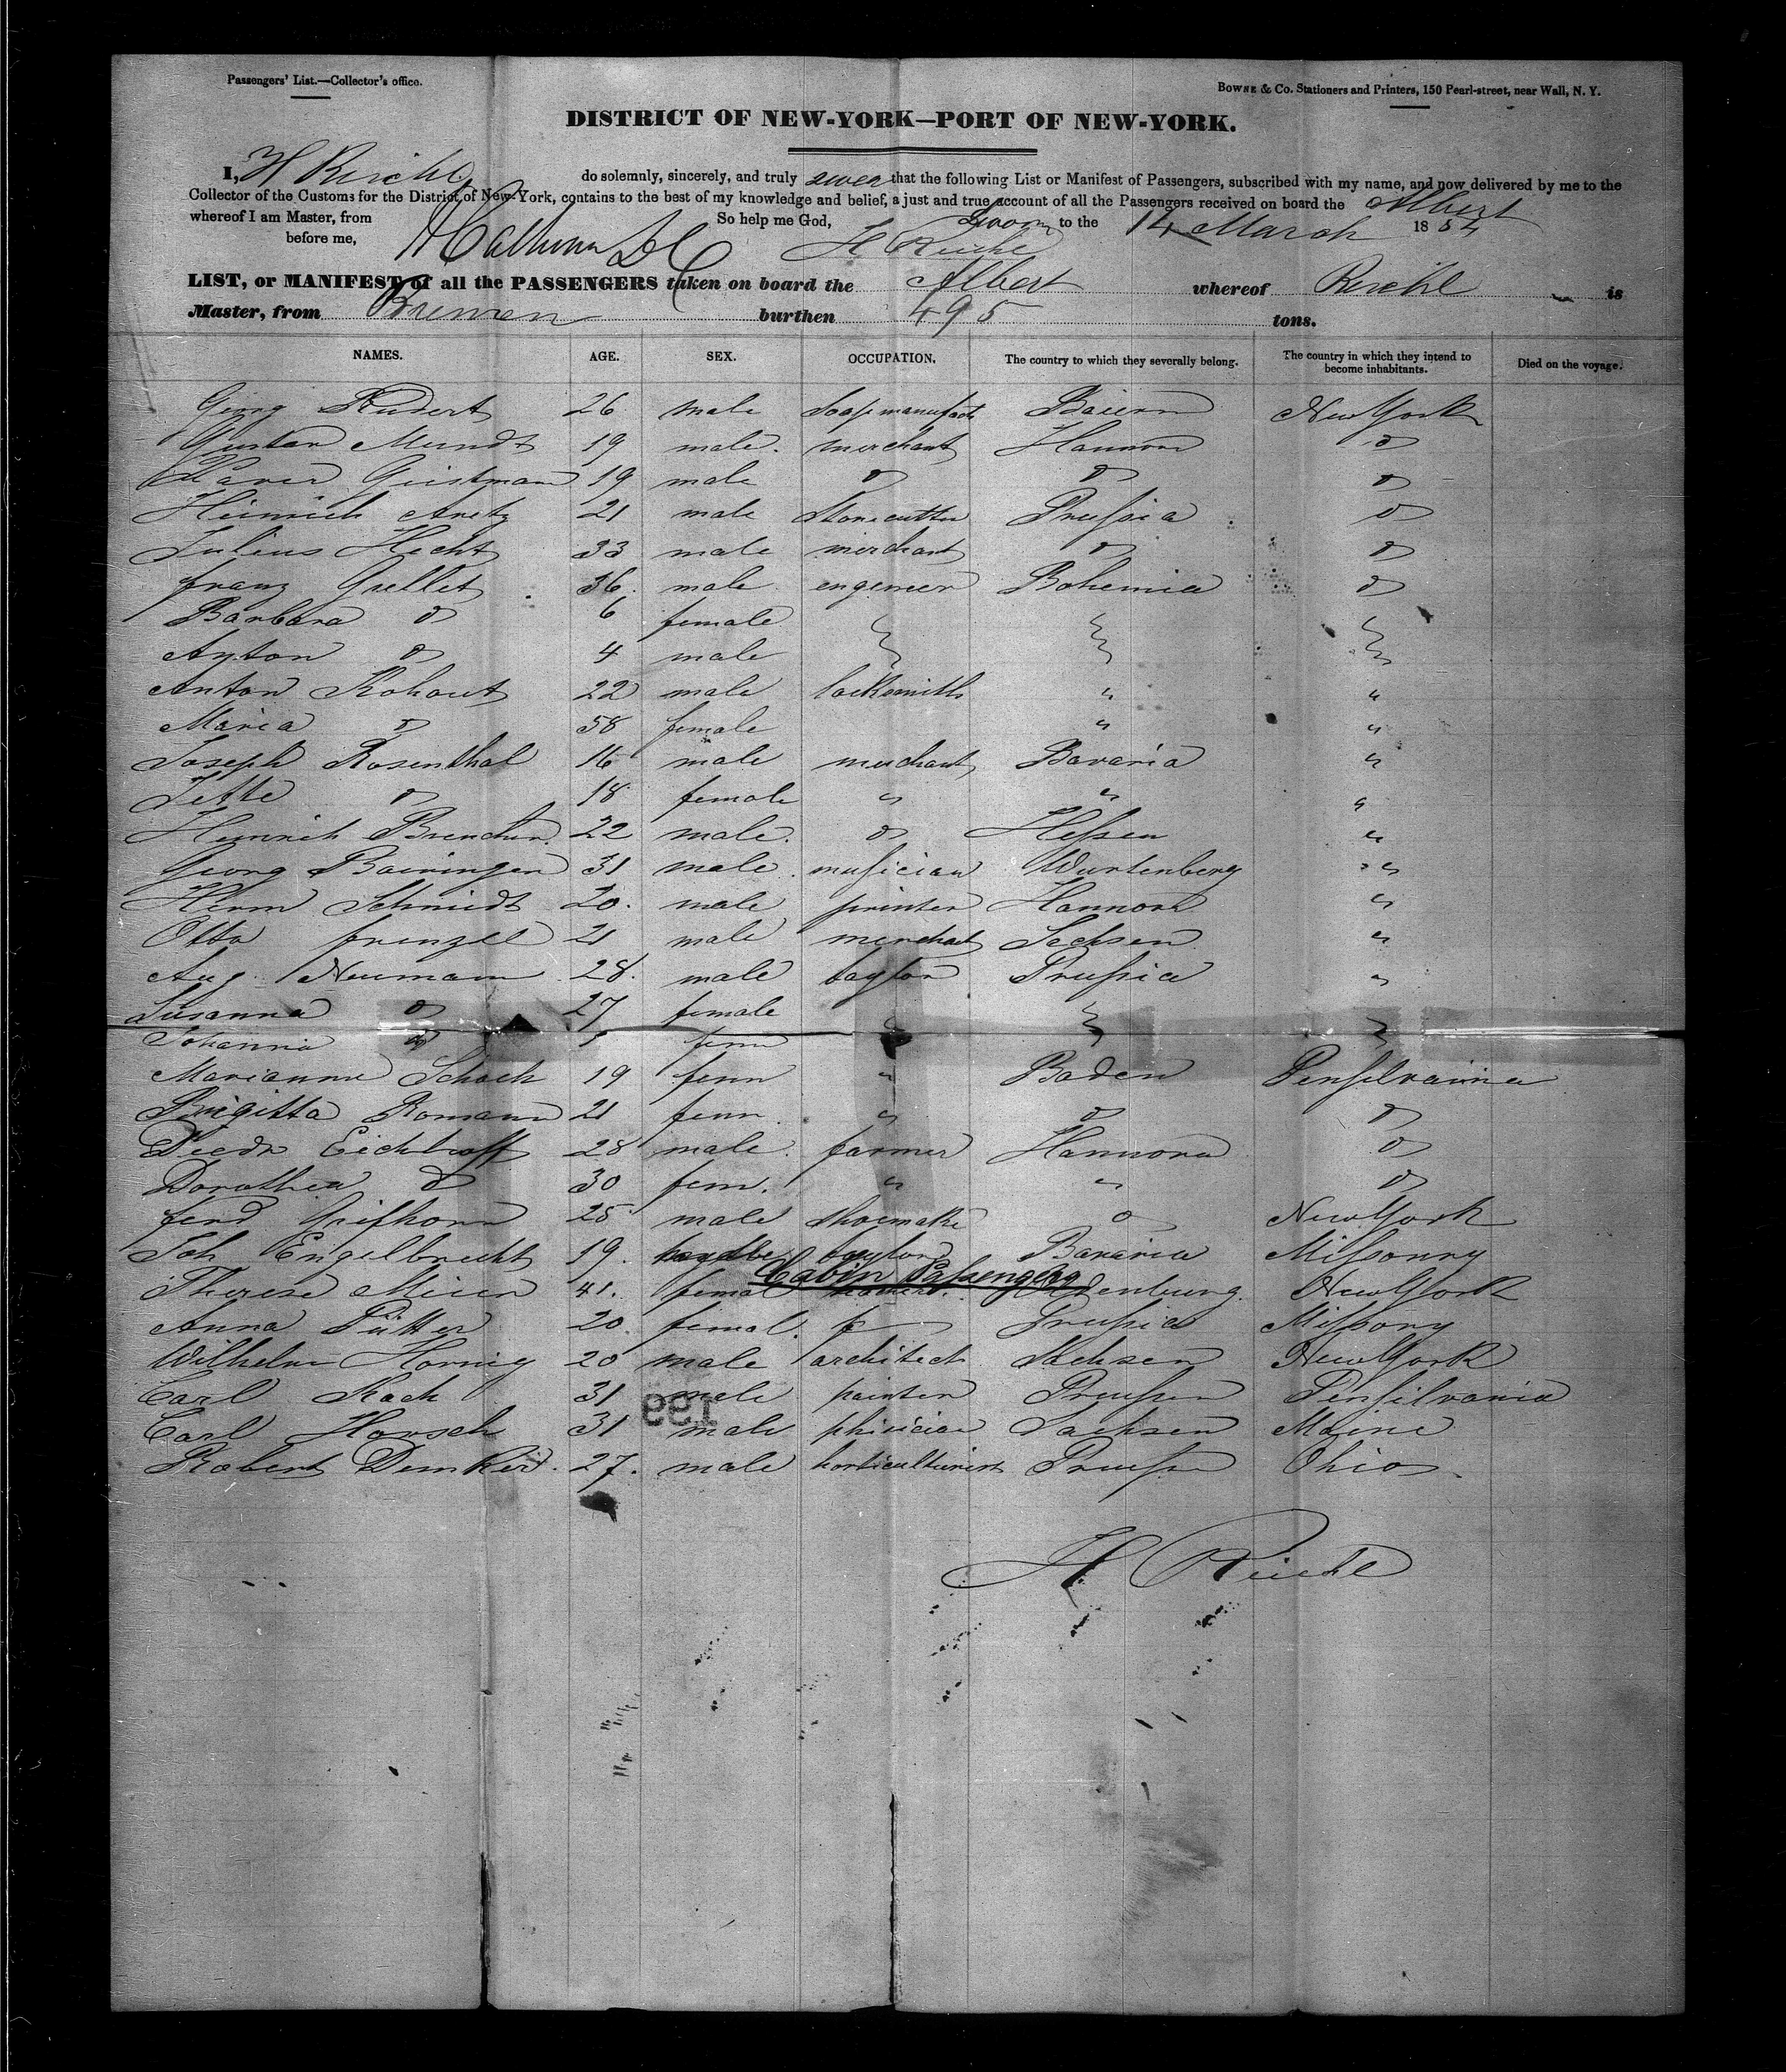 Passengers' List.—Collector's office.
Bowne & Co. Stationers and Printers, 150 Pearl-street, near Wall, N. Y.
DISTRICT OF NEW-YORK—PORT OF NEW-YORK.
I, H do solemnly, sincerely, and truly swear that the following List or Manifest of Passengers, subscribed with my name, and now delivered by me to the
Collector of the Customs for the District of New-York, contains to the best of my knowledge and belief, a just and true account of all the Passengers received on board the Albert
whereof I am Master, from So help me God, Sworn to the 14 March 1854
before me, H
LIST, or MANIFEST of all the PASSENGERS taken on board the Albert whereof is
Master, from Bremen burthen 495 tons.
NAMES. AGE. SEX. OCCUPATION. The country to which they severally belong. The country in which they intend to become inhabitants. Died on the voyage.
Georg 26 male Soapmanufact Baiern New York
Gustav Mundt 19 male. merchant Hannover do
19 male do do do
Heinrich 21 male Stonecutter Prussia do
Julius Hecht 33 male merchant do do
franz 36. male engeneer Bohemia do
Barbara do 6 female
Anton do 4 male
Anton Kohout 22 male locksmith " "
Maria do 58 female " "
Joseph Rosenthal 16 male merchant Bavaria "
Jette do 18 female " " "
Heinrich 22 male. do Hessen "
Georg 31 male. musician Wurtenberg "
Herm Schmidt 20. male printer Hannover "
Otto frenzel 21 male merchant Sachsen "
Aug Neumann 28. male taylor Prussia "
Susanna do 27 female
Johanna do fem
Marianne Schoch 19 fem " Baden Pensilvania
Brigitta Romann 21 fem " do do
Eichhoff 28 male. farmer Hannover do
Dorothea do 30 fem. " " do
ferd 25 male shoemaker do New York
Joh Engelbrecht 19. taylor Bavaria Missoury
Cabin Passengers
Therese 41. femal Oldenburg. New York
Anna Pütter 20 femal. Prussia Missory
Wilhelm Hornig 20 male architect Sachsen New York
Carl Koch 31 male painter Preussen Pensilvania
Carl Horsch 31 male phisician Sachsen Maine
Robert 27. male horticulturist Preussen Ohio
199
H